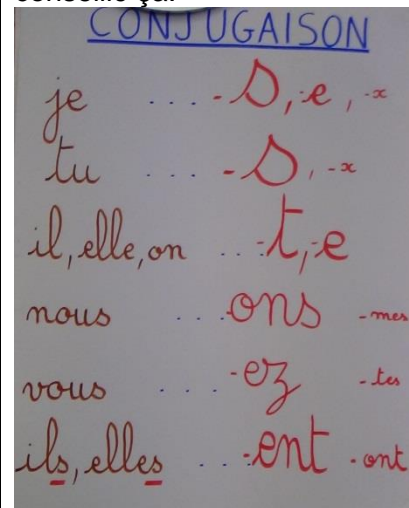 CONJUGAISON
je ... -s, -e, -x
tu ... -s, -x
il, elle, on ... -t, -e
nous ... -ons -mes
vous .... -ez -tes
ils, elles ... -ent -ont